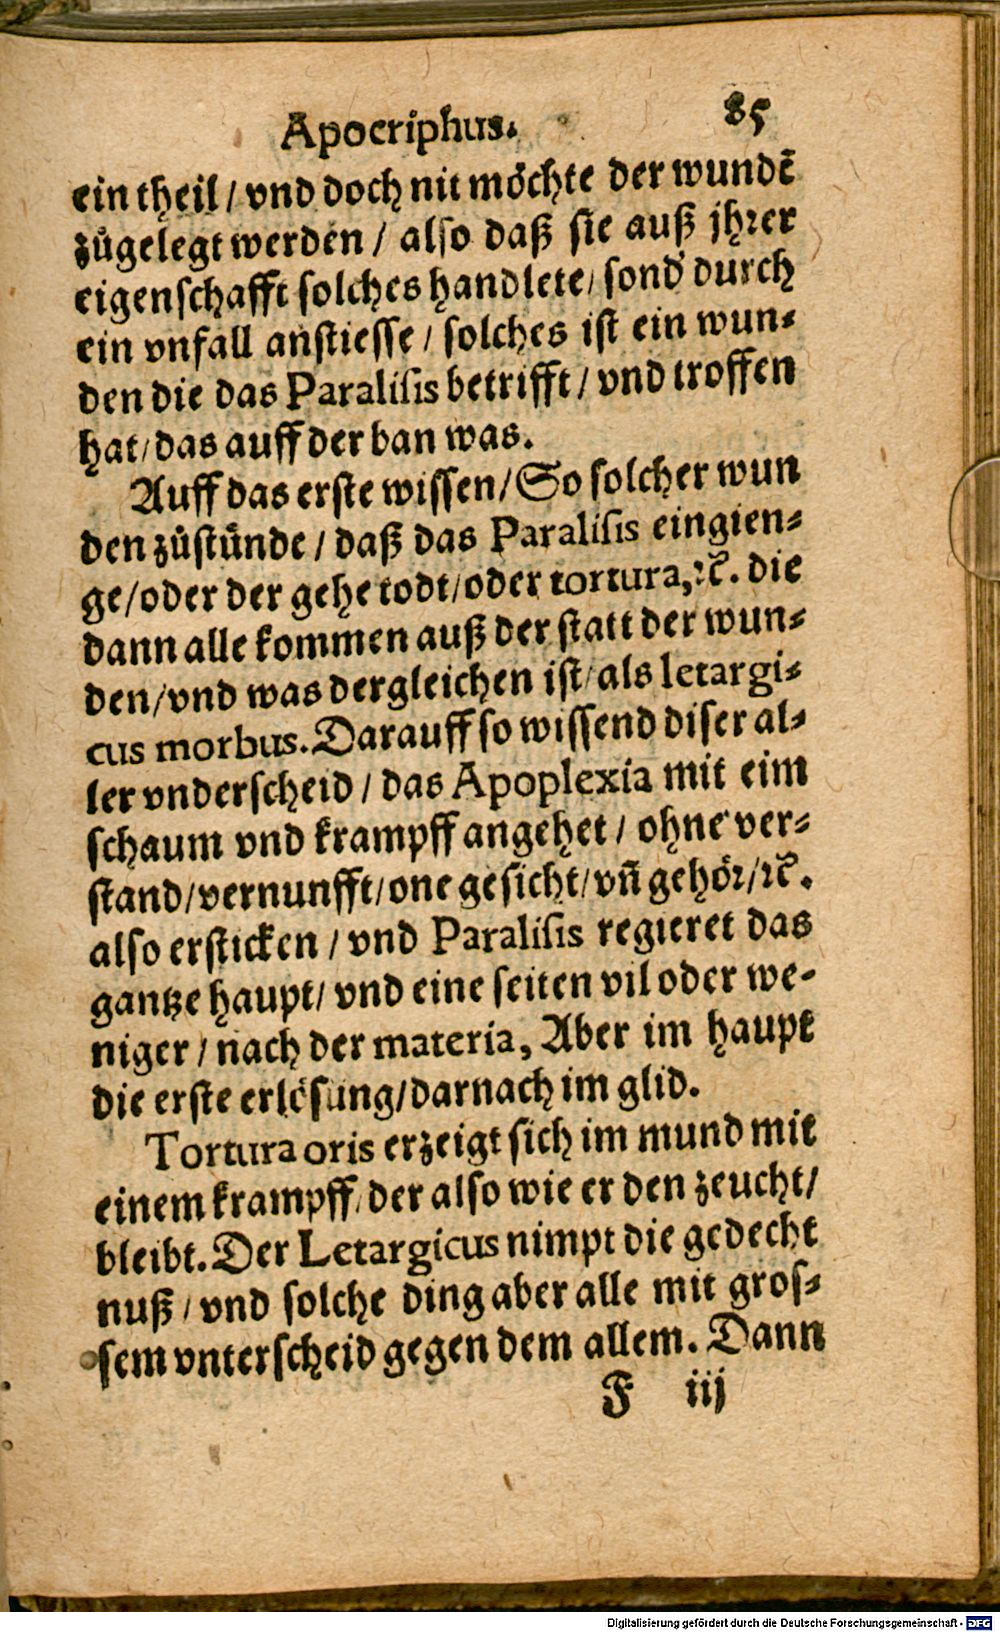 Apocriphus. 85
ein theil / vnd doch nit möchte der wundē
zůgelegt werden / also daß sie auß jhrer
eigenschafft solches handlete / sond' durch
ein vnfall anstiesse / solches ist ein wun-
den die das Paralisis betrifft / vnd troffen
hat / das auff der ban was.
Auff das erste wissen / So solcher wun
den zůstünde / daß das Paralisis eingien-
ge / oder der gehe todt / oder tortura, ꝛc. die
dann alle kommen auß der statt der wun-
den / vnd was dergleichen ist / als letargi-
cus morbus. Darauff so wissend diser al-
ler vnderscheid / das Apoplexia mit eim
schaum vnd krampff angehet / ohne ver-
stand / vernunfft / one gesicht / vñ gehör / ꝛc.
also ersticken / vnd Paralisis regieret das
gantze haupt / vnd eine seiten vil oder we-
niger / nach der materia, Aber im haupt
die erste erlösung / darnach im glid.
Tortura oris erzeigt sich im mund mit
einem krampff / der also wie er den zeucht /
bleibt. Der Letargicus nimpt die gedecht
nuß / vnd solche ding aber alle mit gros-
sem vnterscheid gegen dem allem. Dann
F iij
Digitalisierung gefördert durch die Deutsche Forschungsgemeinschaft - DFG